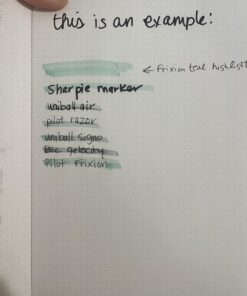 this is an example:
← frixion teal highlight
Sharpie marker
uniball air
pilot razor
uniball signo
Bic gelocity
Pilot Frixion